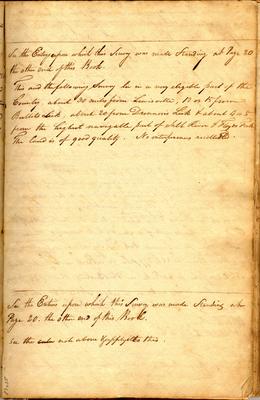 See the Entry upon which this Survey was made Standing at Page 20
the other end of this Book.
This and the following Survey lie in a very eligible part of the
Country, about 30 miles from Louisville, 12 or 15 from
Bullets Lick, about 20 from Drennons Lick & about 4 or 5
from the highest navigable part of Salt River & Floyds Fork
The land is of good quality. No interference recollected.
See the Entries upon which this Survey was made Standing at
Page 20. the other end of this Book.
See the note above & apply to this.